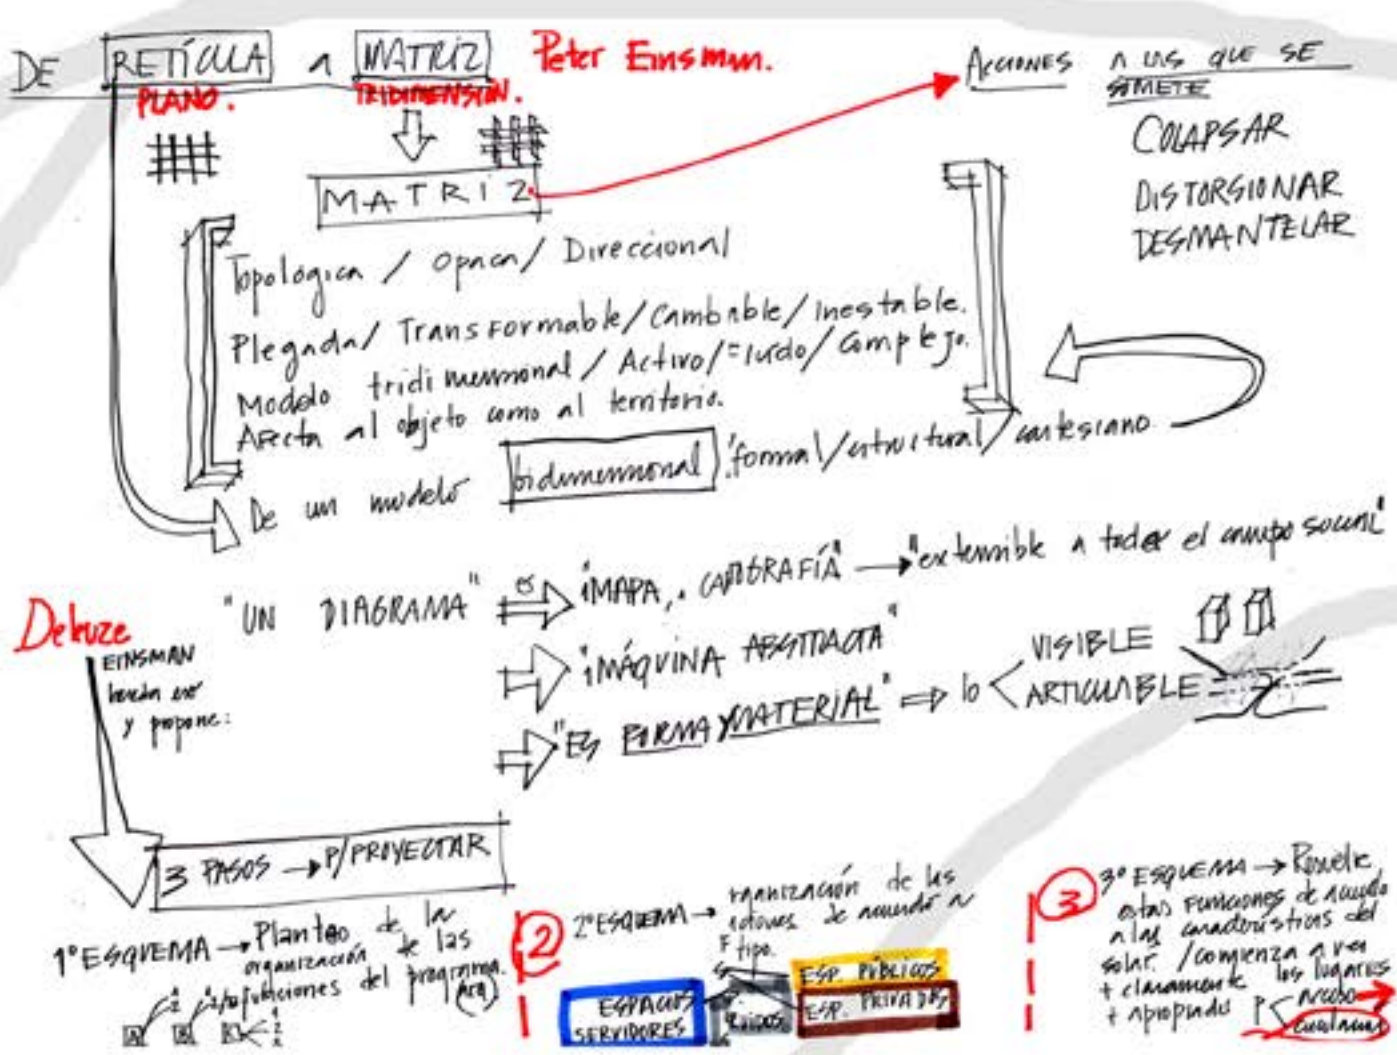 DE RETÍCULA A MATRIZ Peter Einsman.
PLANO. TRIDIMENSION.
ACCIONES A LAS QUE SE
SOMETE
COLAPSAR
DISTORSIONAR
DESMANTELAR
MATRIZ
Topológica / Opaca / Direccional
Plegada / Transformable / Cambiable / Inestable.
Modelo tridimensional / Activo / Complejo.
Afecta al objeto como al territorio.
De un modelo bidimensional formal / estructural / cartesiano
"UN DIAGRAMA" es "MAPA, CARTOGRAFÍA" → "extensible a todo el campo social"
"MÁQUINA ABSTRACTA"
"ES FORMA Y MATERIAL" ⇒ lo < VISIBLE
ARTICULABLE
Deleuze
EINSMAN
y propone:
3 PASOS → P/PROYECTAR
1º ESQUEMA → Planteo de la
organización de las
funciones del programa.
A B
2
2º ESQUEMA → organización de las
de acuerdo a
tipo.
ESPACIOS
SERVIDORES
ESP. PÚBLICOS
ESP. PRIVADOS
3
3º ESQUEMA → Resuelve
estas funciones de acuerdo
a las características del
solar. / comienza a ver
+ claramente los lugares
+ apropiados P < Acceso